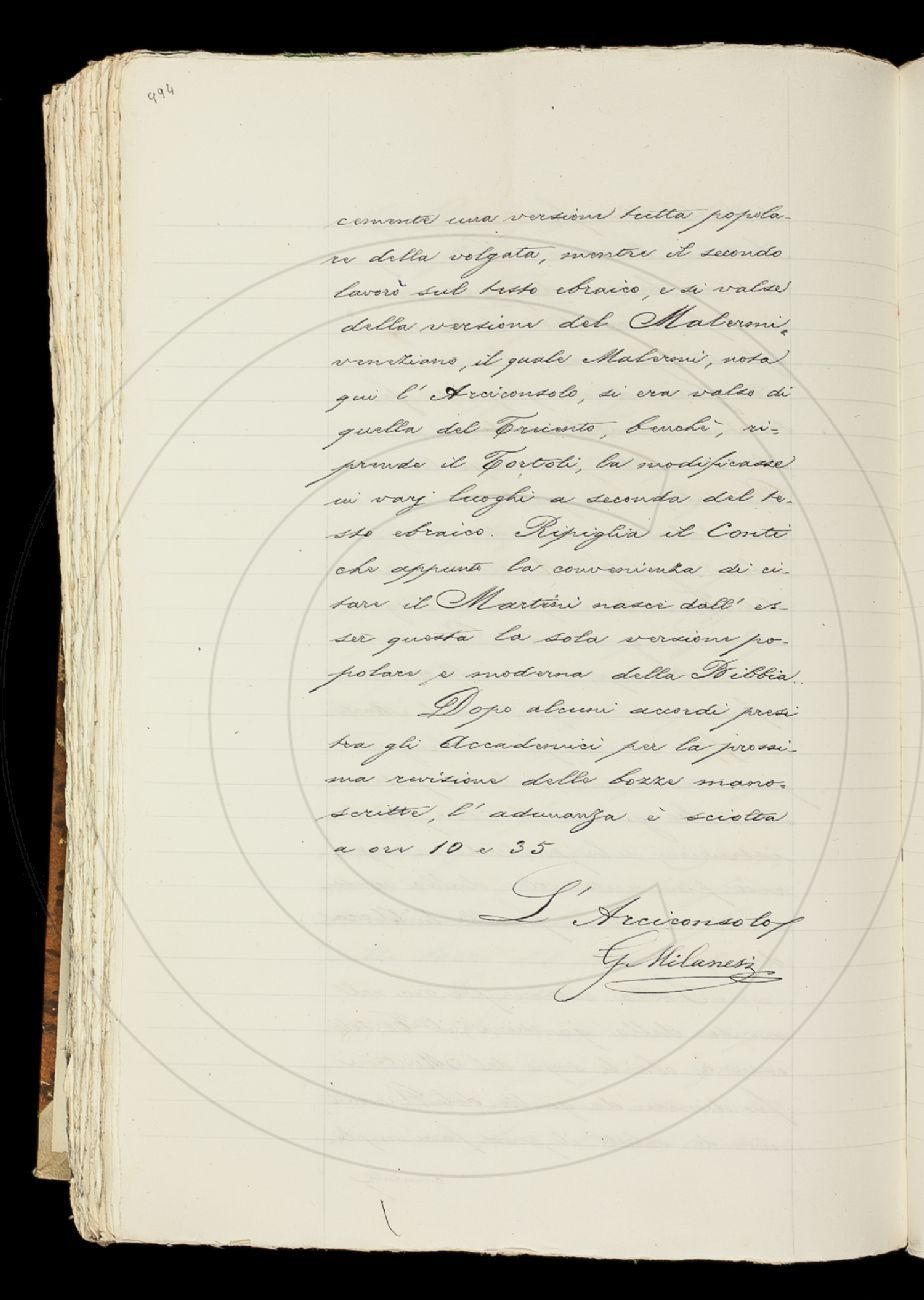 494
cemente una versione tutta popola-
re della volgata, mentre il secondo
lavorò sul testo ebraico, e si valse
della versione del Malermi
veneziano, il quale Malermi, nota
qui l' Arciconsolo, si era valso di
quella del Trecento, benchè, ri-
prende il Tortoli, la modificasse
in varj luoghi a seconda del te-
sto ebraico. Ripiglia il Conti
che appunto la convenienza di ci-
tare il Martini nasce dall' es-
ser questa la sola versione po-
polare e moderna della Bibbia.
Dopo alcuni accordi presi
tra gli Accademici per la prossi-
ma revisione delle bozze mano-
scritte, l' adunanza è sciolta
a ore 10 e 35
L' Arciconsolo
G Milanesi